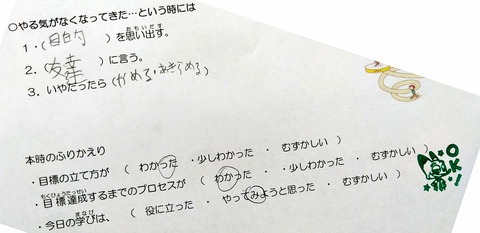 ○やる気がなくなってきた…という時には
1・(目的)を思い出す。
2.(友達)に言う。
3．いやだったら(かめる・あきらめる)
本時のふりかえり
・目標の立て方が ( わかった ・少しわかった ・ むずかしい )
・目標達成するまでのプロセスが ( わかった ・少しわかった ・ むずかしい )
・今日の学びは、( 役に立った ・ やってみようと思った ・ むずかしい )
OK!